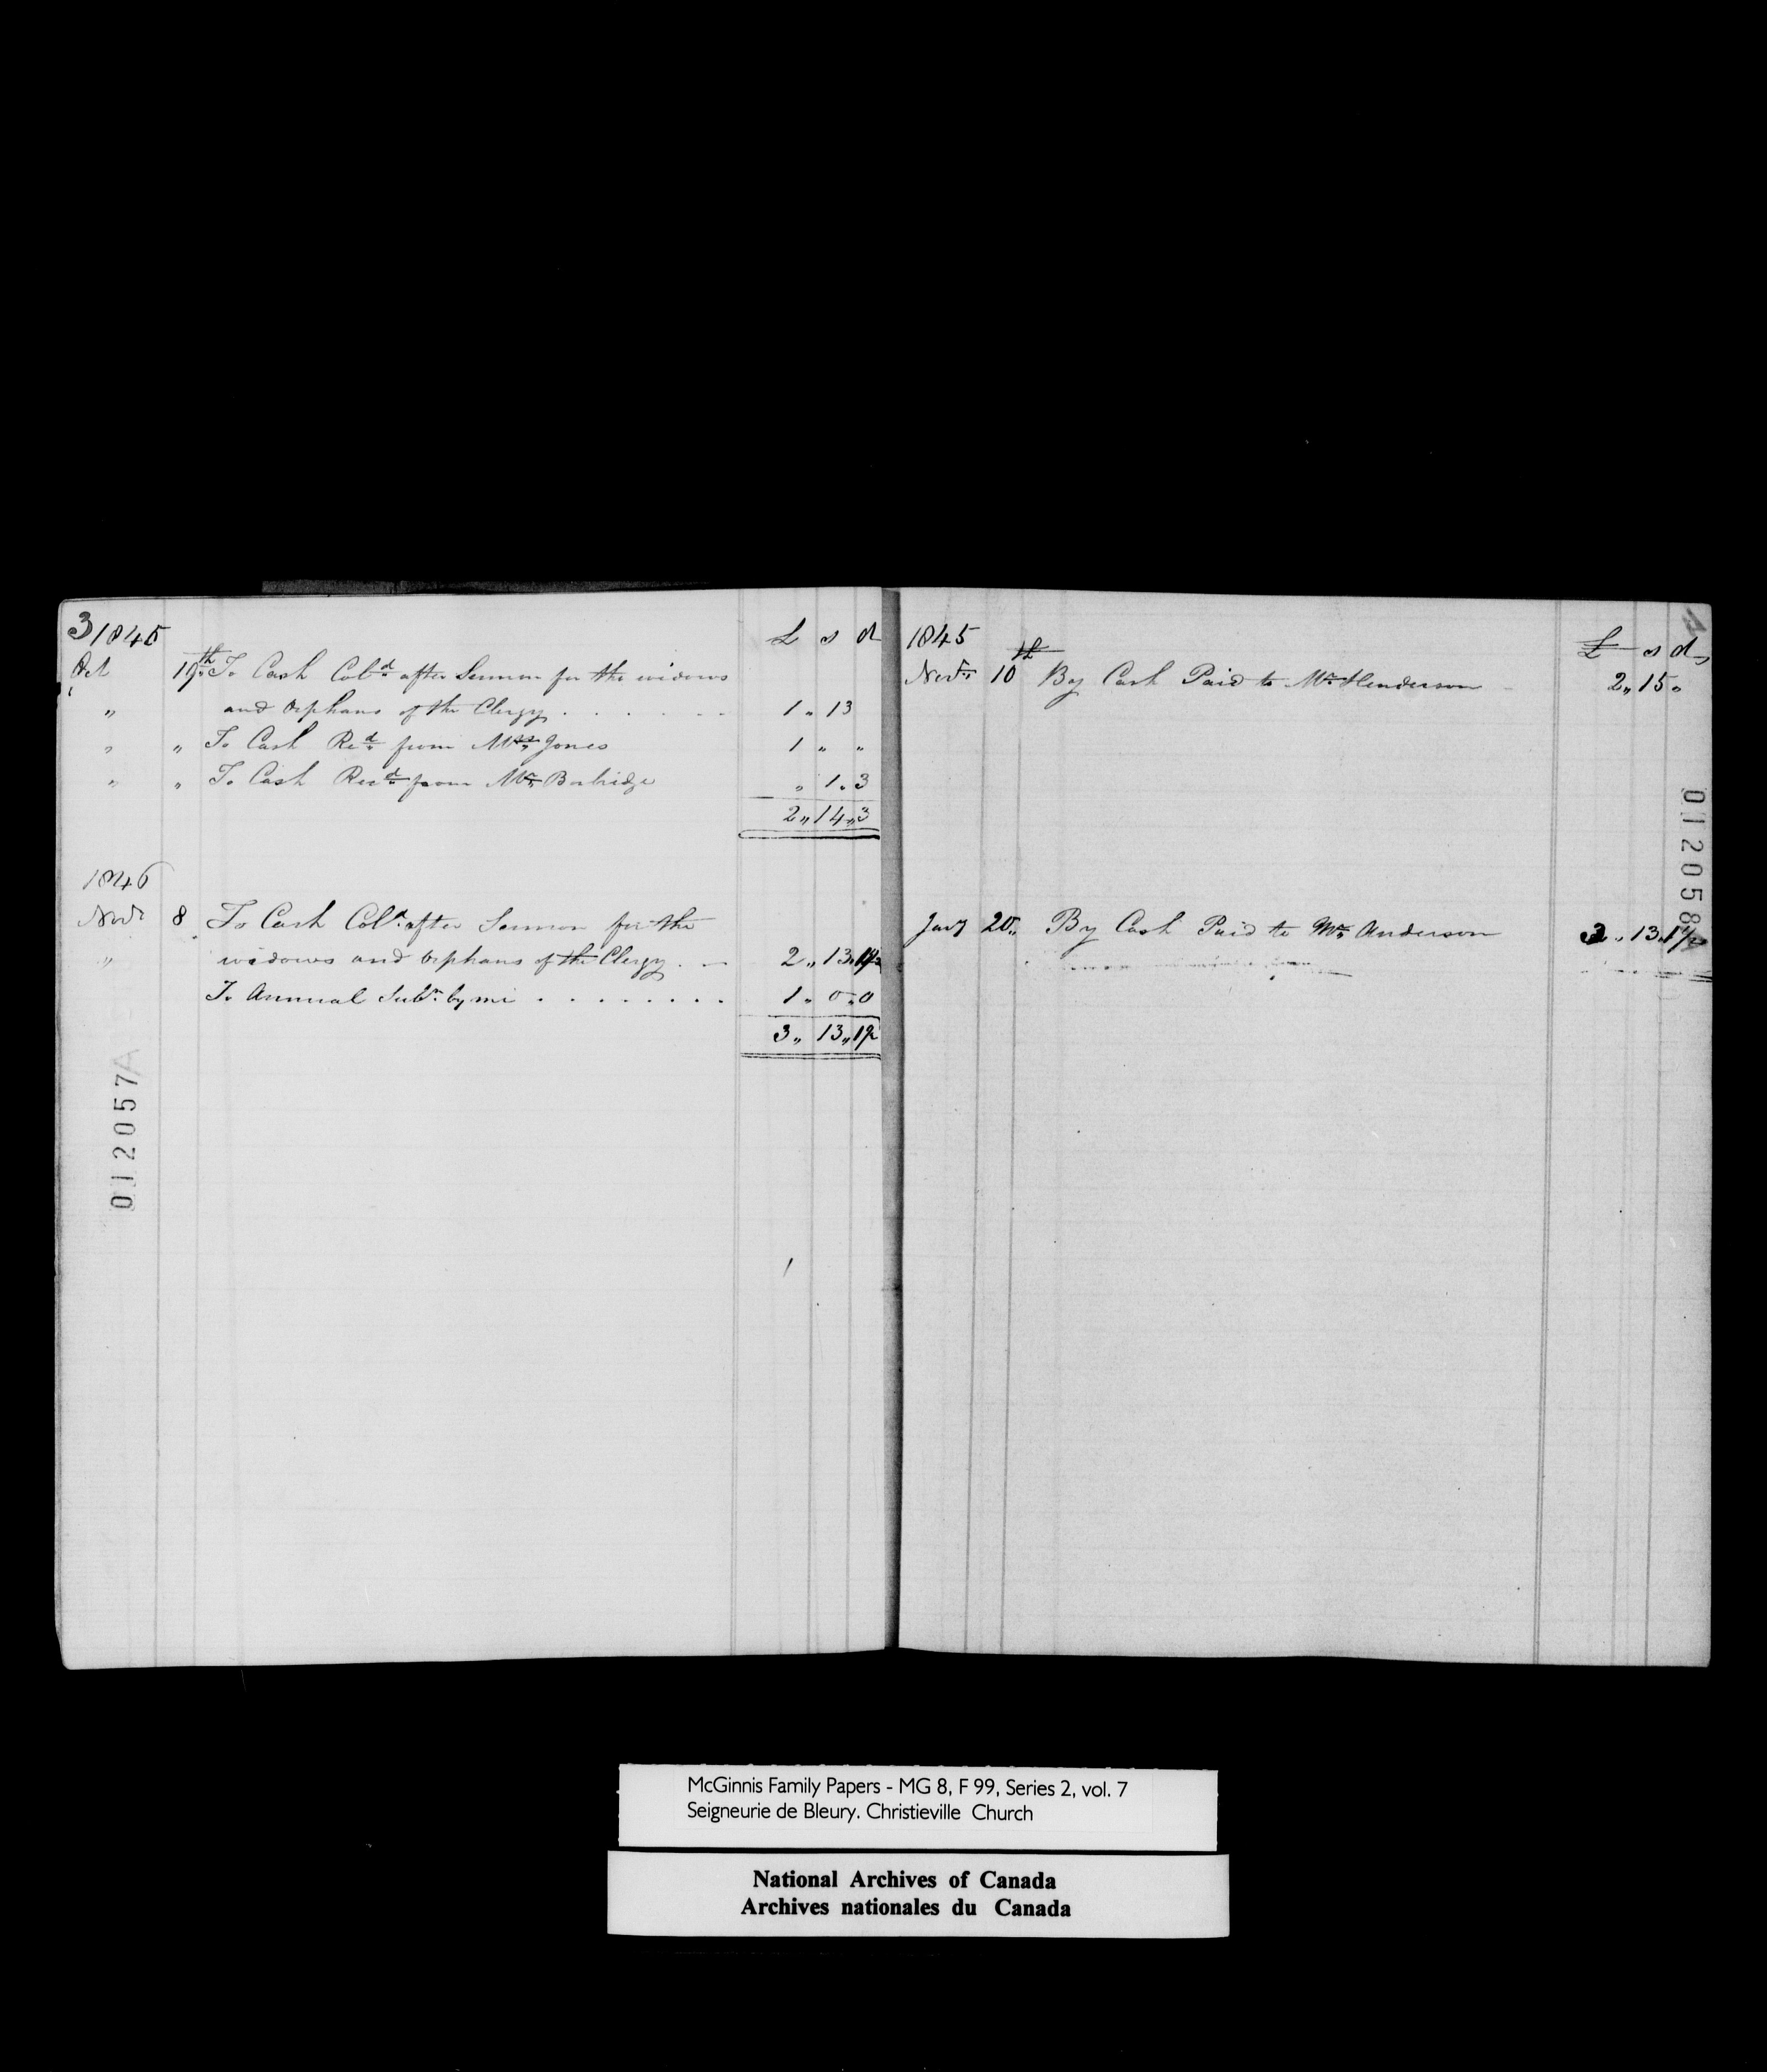 3 1845 £ s d
Oct 19th To Cash Cold after Sermon for the widows
" and Orphans of the Clergy . . . . . . 1 " 13
" " To Cash Red from Mrs Jones 1 " "
" " To Cash Recd from Mr Borbridge " 1 " 3
2 " 14 " 3
1846
Novr 8 To Cash Cold after Sermon for the
" widows and Orphans of the Clergy . - 2 " 13 " 1½
To Annual Subn by me . . . . . . . . 1 " 0 " 0
3 " 13 " 1½
012057A
1845 £ s d
Novr 10th By Cash Paid to Mr Henderson 2 " 15 "
Jany 20 " By Cash Paid to Mr Anderson 3 " 13 " 1½
012058A
McGinnis Family Papers - MG 8, F 99, Series 2, vol. 7
Seigneurie de Bleury. Christieville Church
National Archives of Canada
Archives nationales du Canada